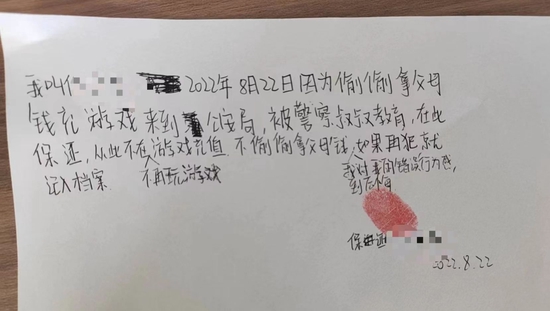 我叫 2022年8月22日因为偷偷拿父母
钱充游戏来到公安局,被警察叔叔教育,在此
保证,从此不在游戏充值 不偷偷拿父母钱,如果再犯就
记入档案 不再玩游戏
我对我的错误行为感
到后悔
保证
2022.8.22